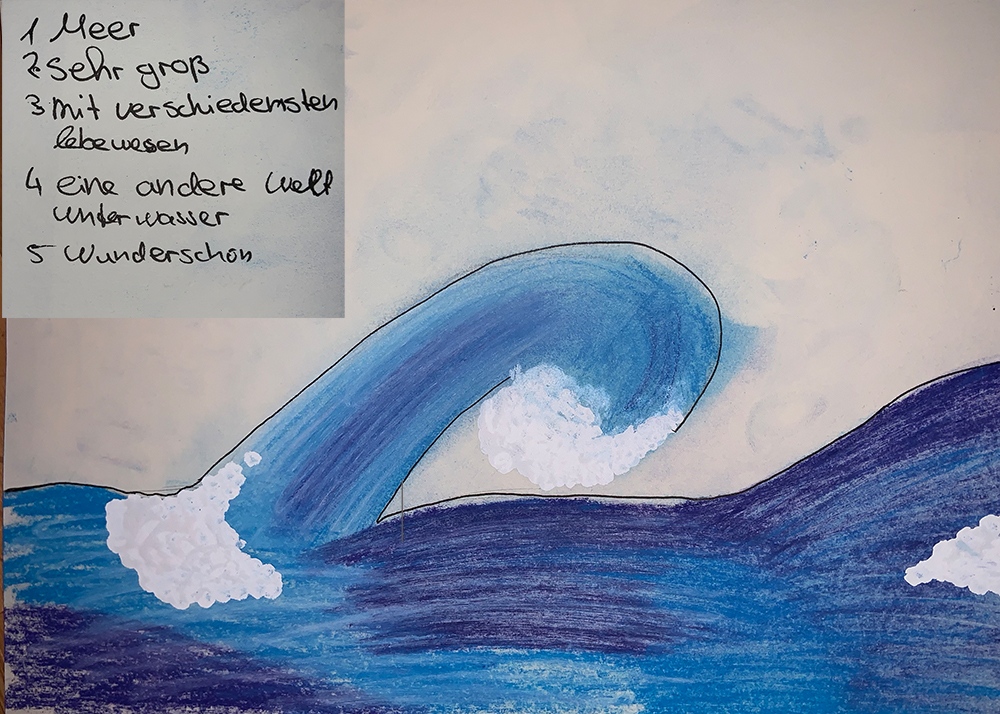 1 Meer
2 Sehr groß
3 mit verschiedemsten
lebewesen
4 eine andere Welt
unterwasser
5 Wunderschön